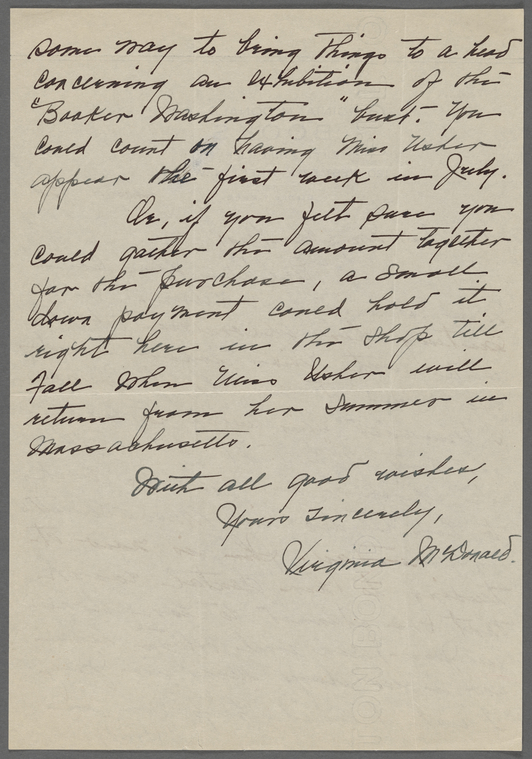 some way to bring things to a head
concerning an exhibition of the
"Booker Washington" bust. You
could count on having Miss Usher
appear the first week in July.
Or, if you felt sure you
could gather the amount together
for the purchase, a small
down payment could hold it
right here in the shop till
Fall when Miss Usher will
return from her summer in
Massachusetts.
With all good wishes,
Yours sincerely,
Virginia McDonald.